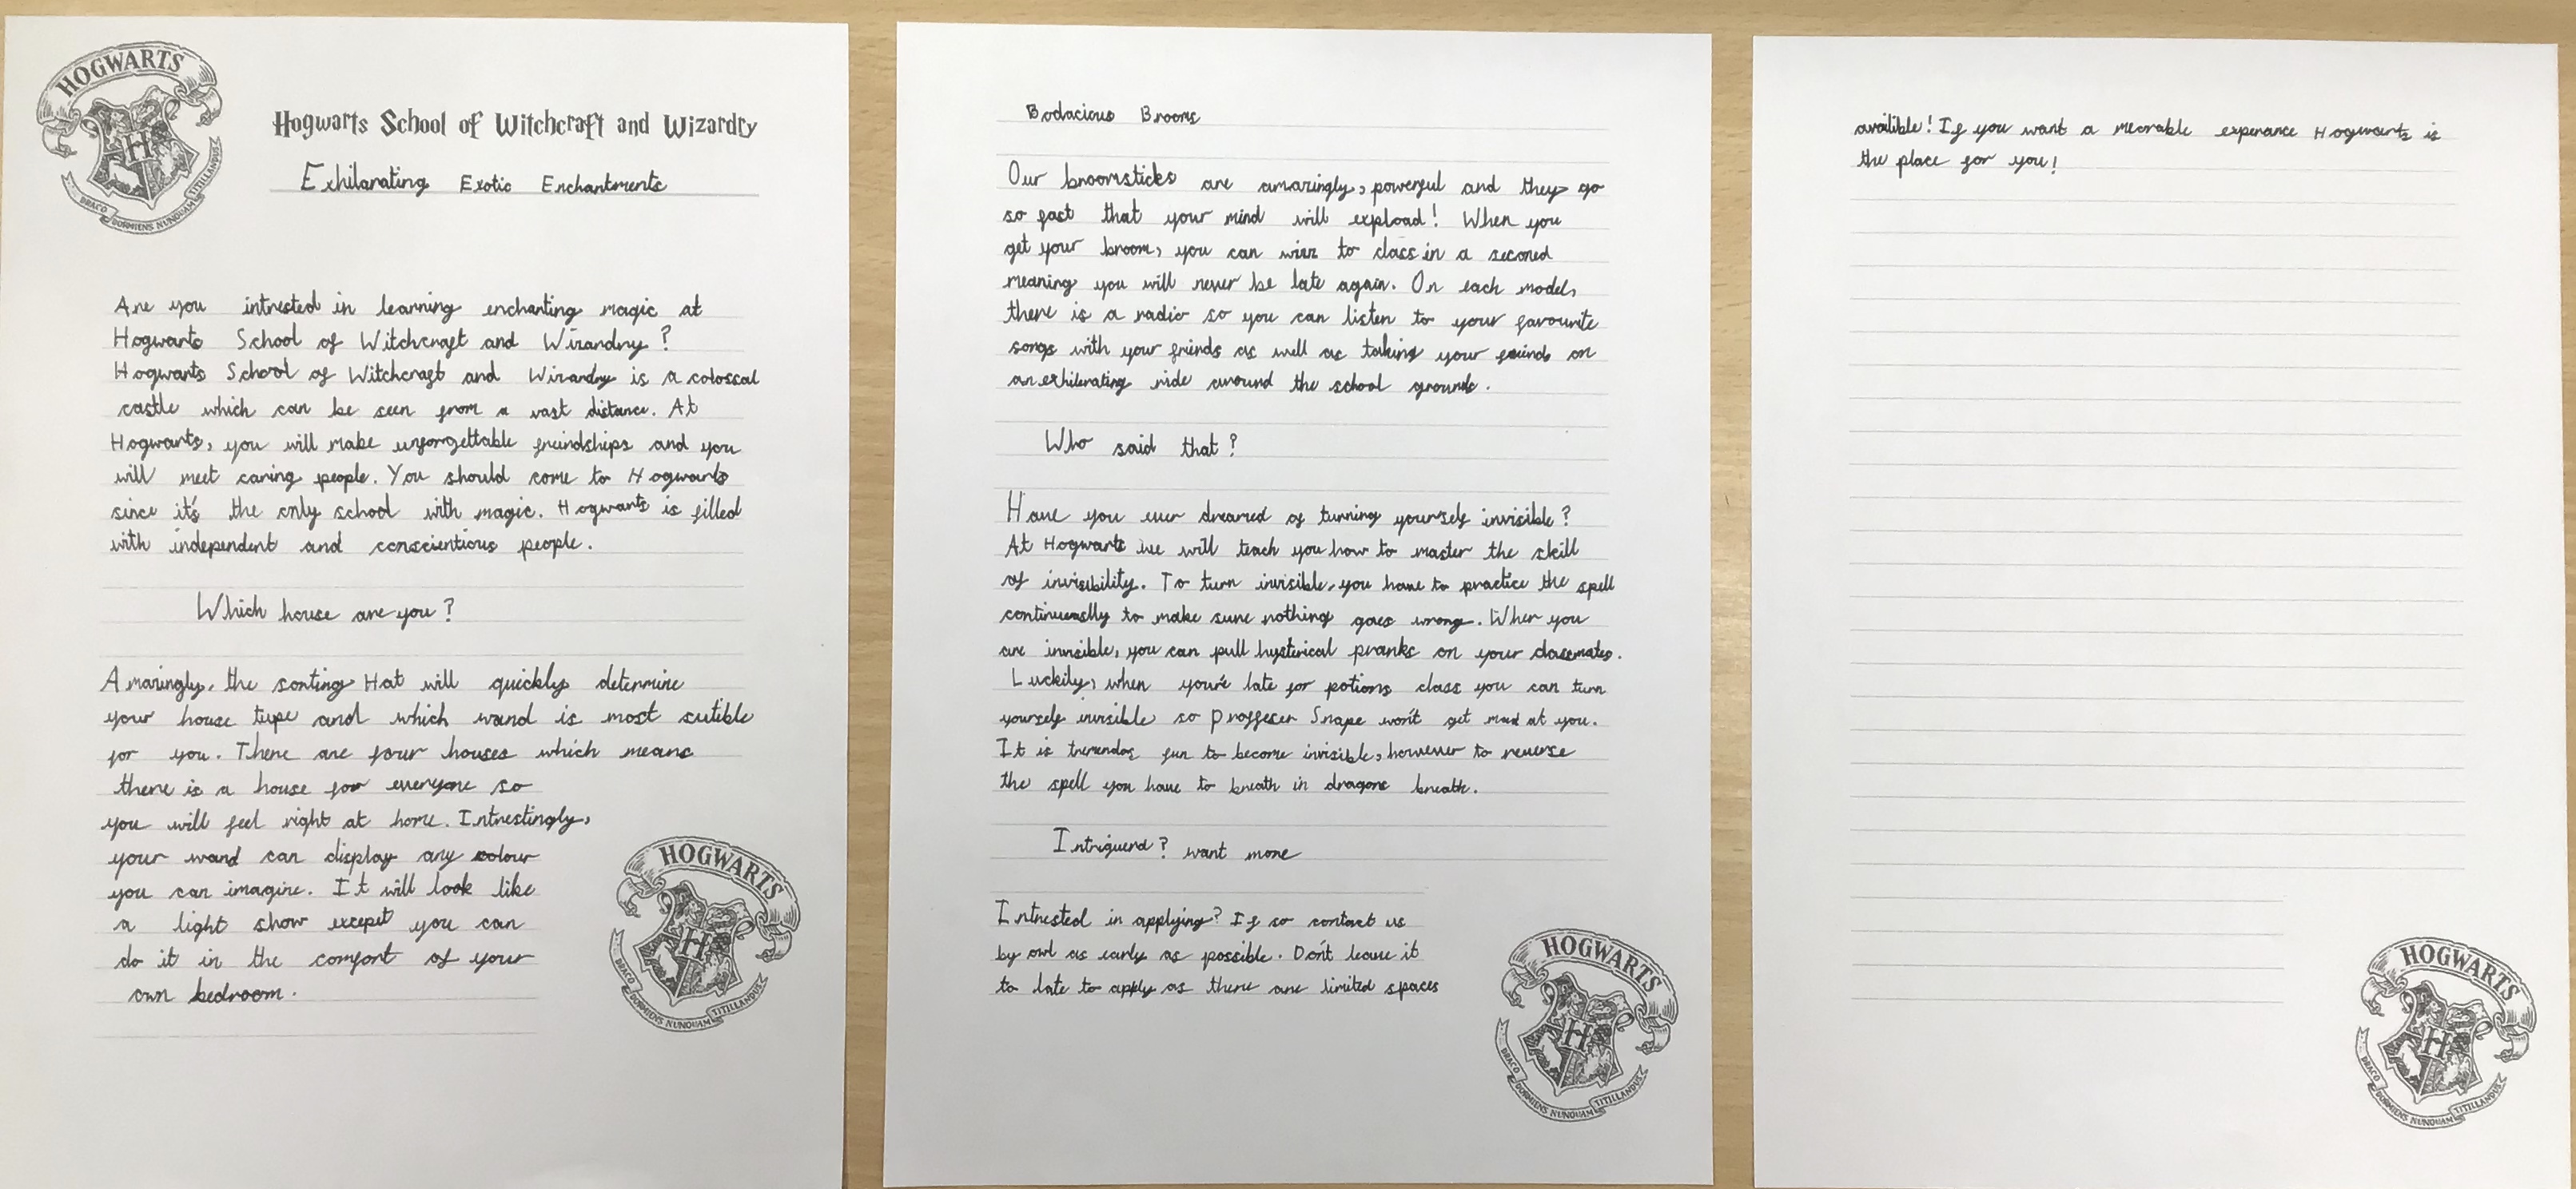 HOGWARTS
DRACO DORMIENS NUNQUAM TITILLANDUS
Hogwarts School of Witchcraft and Wizardry
Exhilarating Exotic Enchantments
Are you intrested in learning enchanting magic at
Hogwarts School of Witchcraft and Wizardry?
Hogwarts School of Witchcraft and Wizardry is a colossal
castle which can be seen from a vast distance. At
Hogwarts, you will make unforgettable freindships and you
will meet caring people. You should come to Hogwarts
since it's the only school with magic. Hogwarts is filled
with independent and conscientious people.
Which house are you?
Amazingly, the sorting Hat will quickly determine
your house type and which wand is most sutible
for you. There are four houses which means
there is a house for everyone so
you will feel right at home. Intrestingly,
your wand can display any colour
you can imagine. It will look like
a light show excepet you can
do it in the comfort of your
own bedroom.
HOGWARTS
DRACO DORMIENS NUNQUAM TITILLANDUS
Bodacious Brooms
Our broomsticks are amazingly, powerful and they go
so fast that your mind will expload! When you
get your broom, you can wizz to class in a seconed
meaning you will never be late again. On each model,
there is a radio so you can listen to your favourite
songs with your freinds as well as taking your freinds on
an exhilerating ride around the school grounds.
Who said that?
Have you ever dreamed of turning yourself invisible?
At Hogwarts we will teach you how to master the skill
of invisibility. To turn invisible, you have to practice the spell
continueslly to make sure nothing goes wrong. When you
are invisible, you can pull hysterical pranks on your classmates.
Luckily, when you're late for potions class you can turn
yourself invisible so proffeser Snape won't get mad at you.
It is tremendos fun to become invisible, however to reverse
the spell you have to breath in dragons breath.
Intriguend? want more
Intrested in applying? If so contact us
by owl as early as possible. Don't leave it
to late to apply as there are limited spaces
HOGWARTS
DRACO DORMIENS NUNQUAM TITILLANDUS
availible! If you want a meorable experance Hogwarts is
the place for you!
HOGWARTS
DRACO DORMIENS NUNQUAM TITILLANDUS